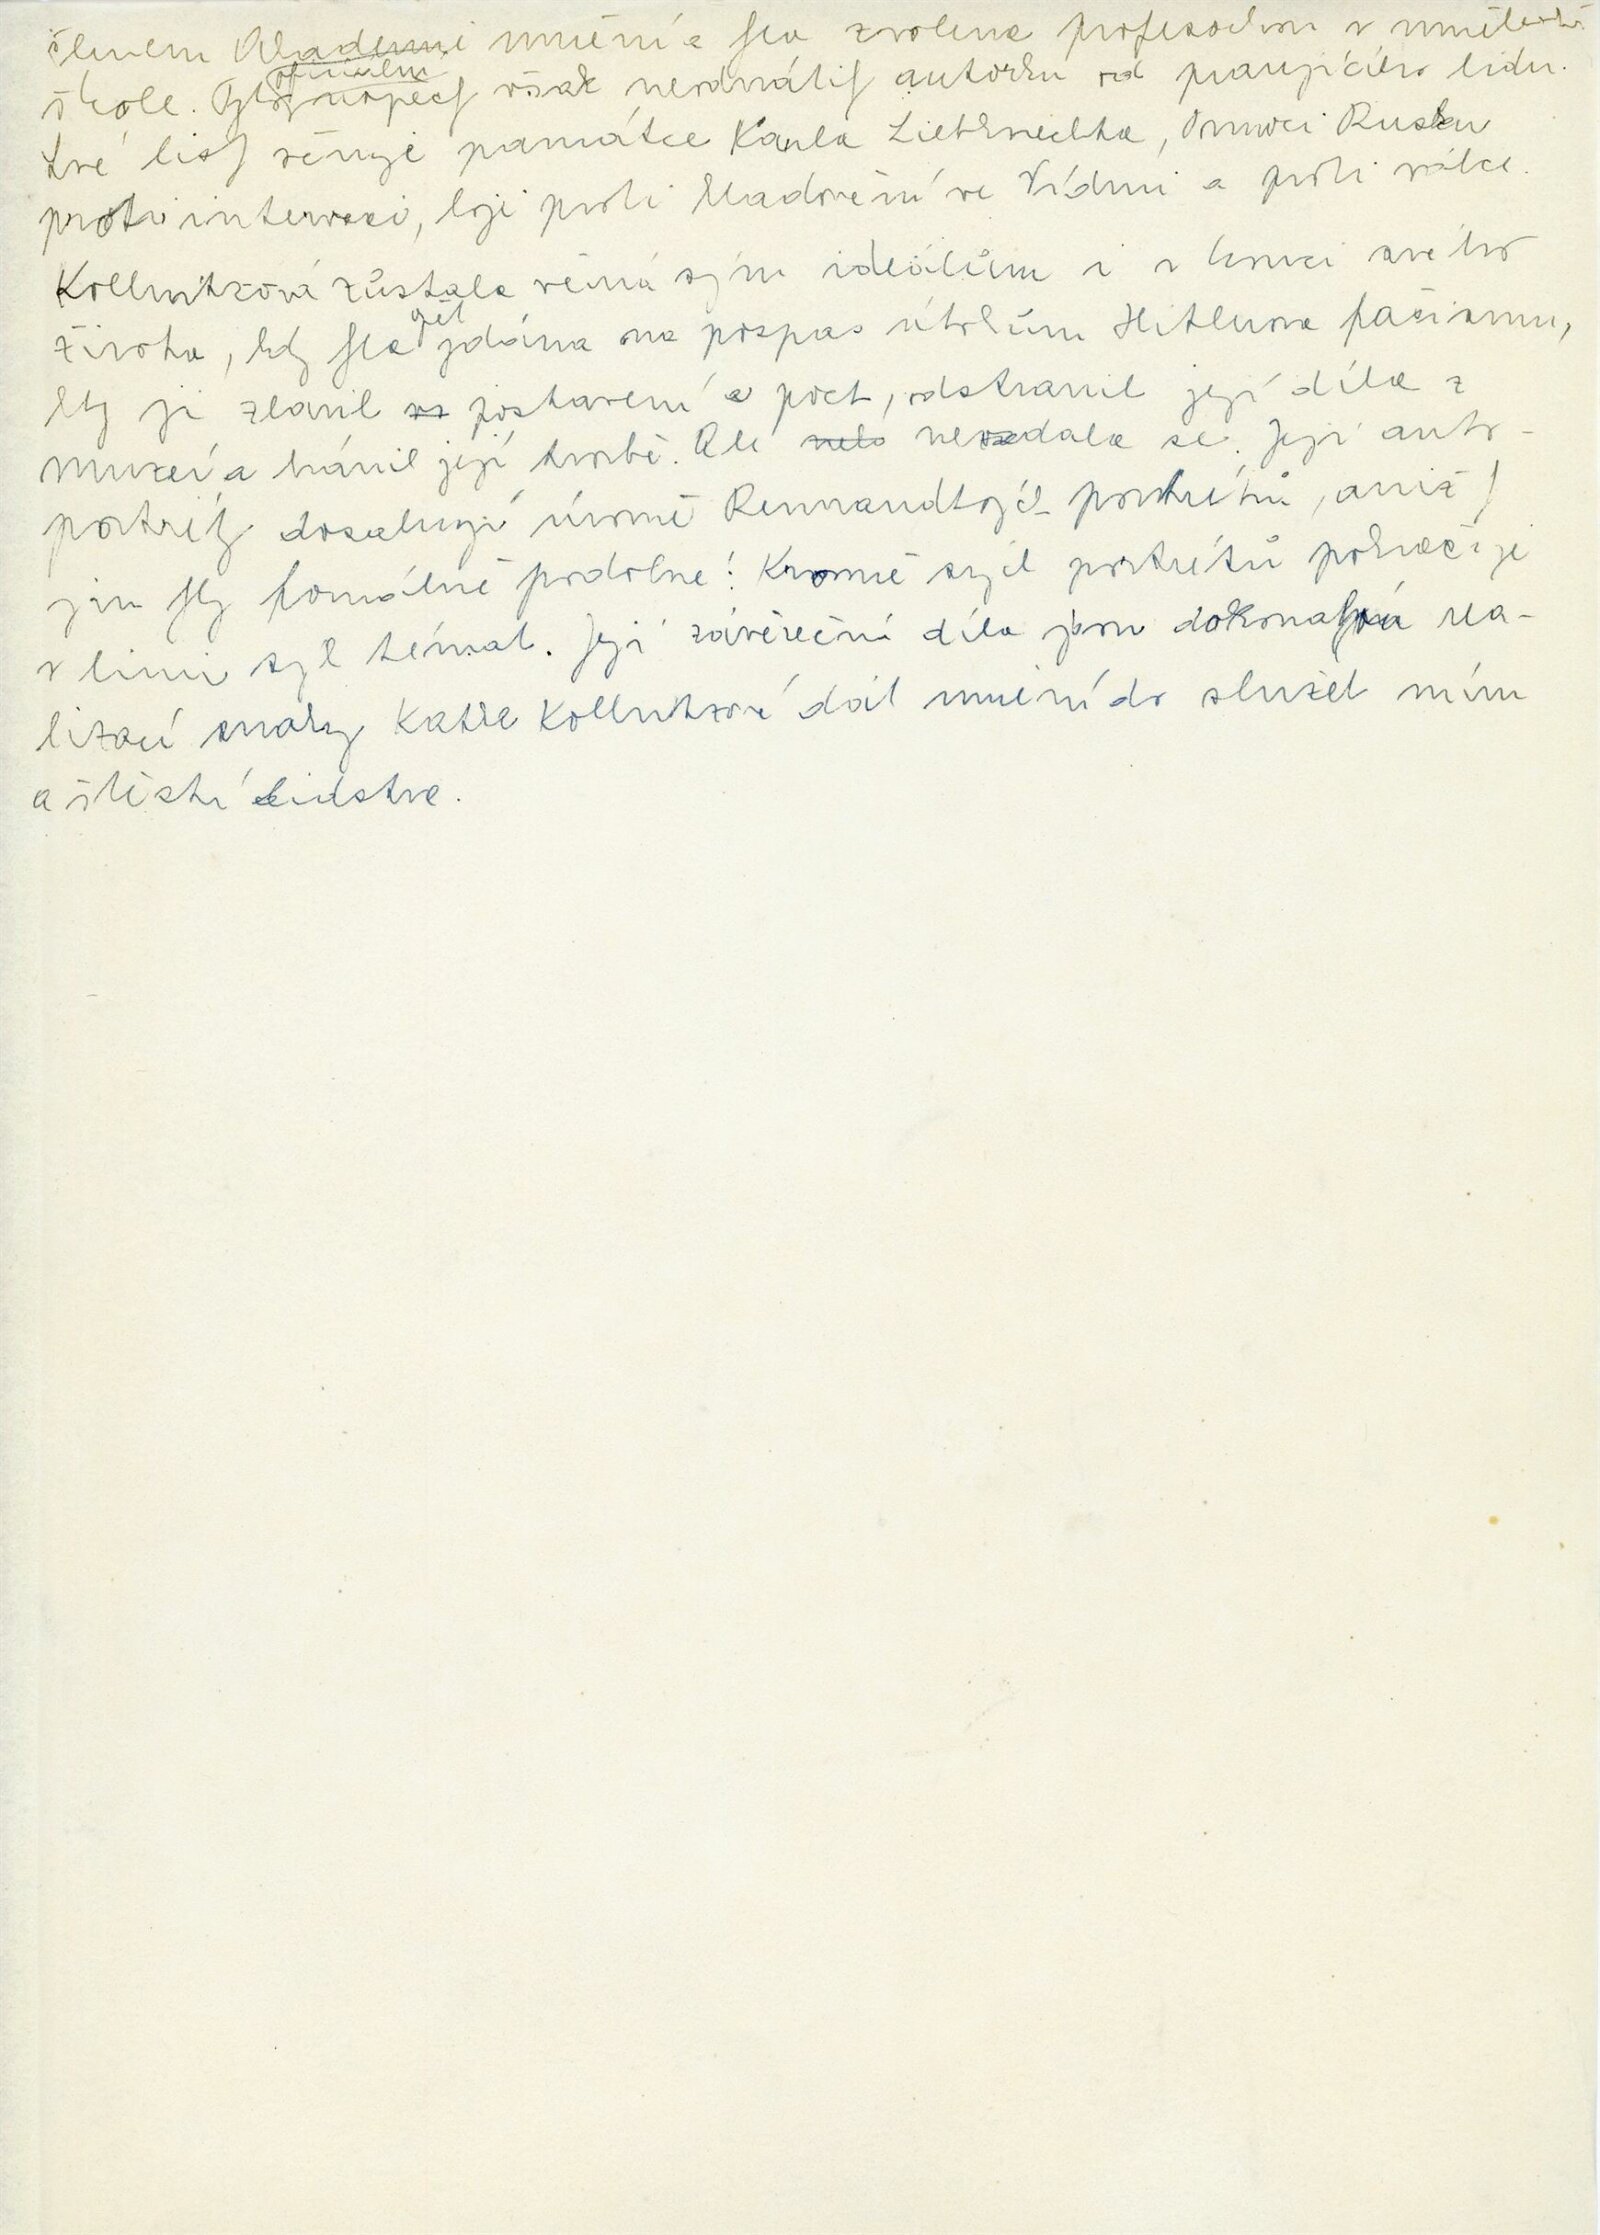 členem Akademie umění a byla zvolena profesorkou v umělecké
škole. Tyto oficielní úspěchy však neodvrátily autorku od pracujícího lidu.
Své listy věnuje památce Karla Liebknechta, pomoci Rusku
proti intervenci, boji proti hladovění ve Vídni a proti válce.
Kollwitzová zůstala věrná svým ideálům i v konci svého
života, kdy byla opět vydána na pospas útokům Hitlerova fašismu,
který ji zbavil postavení a poct, odstranil její díla z
muzeí a bránil její tvorbě. Ale nevzdala se. Její auto-
portréty dosahují úrovně Remrandtových portrétů, aniž by
jim byly formálně podobné! Kromě svých portrétů pokračuje
v linii svých témat. Její závěrečná díla jsou dokonalou rea-
lizací snahy Kathe Kollwitzové dát umění do služeb míru
a štěstí lidstva.